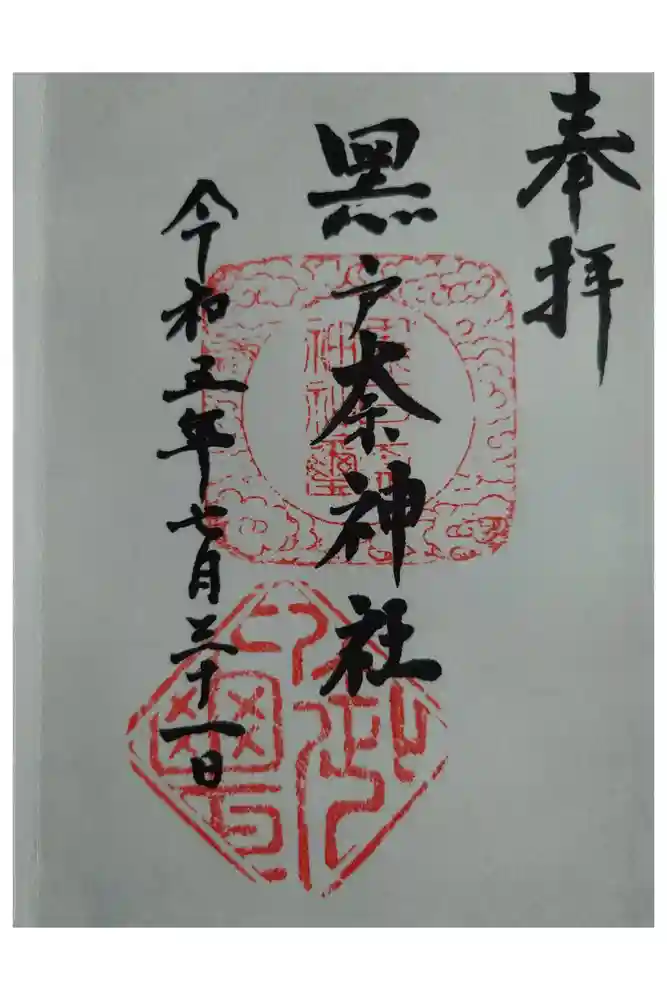 奉拝
黒戸奈神社
令和五年七月三十一日